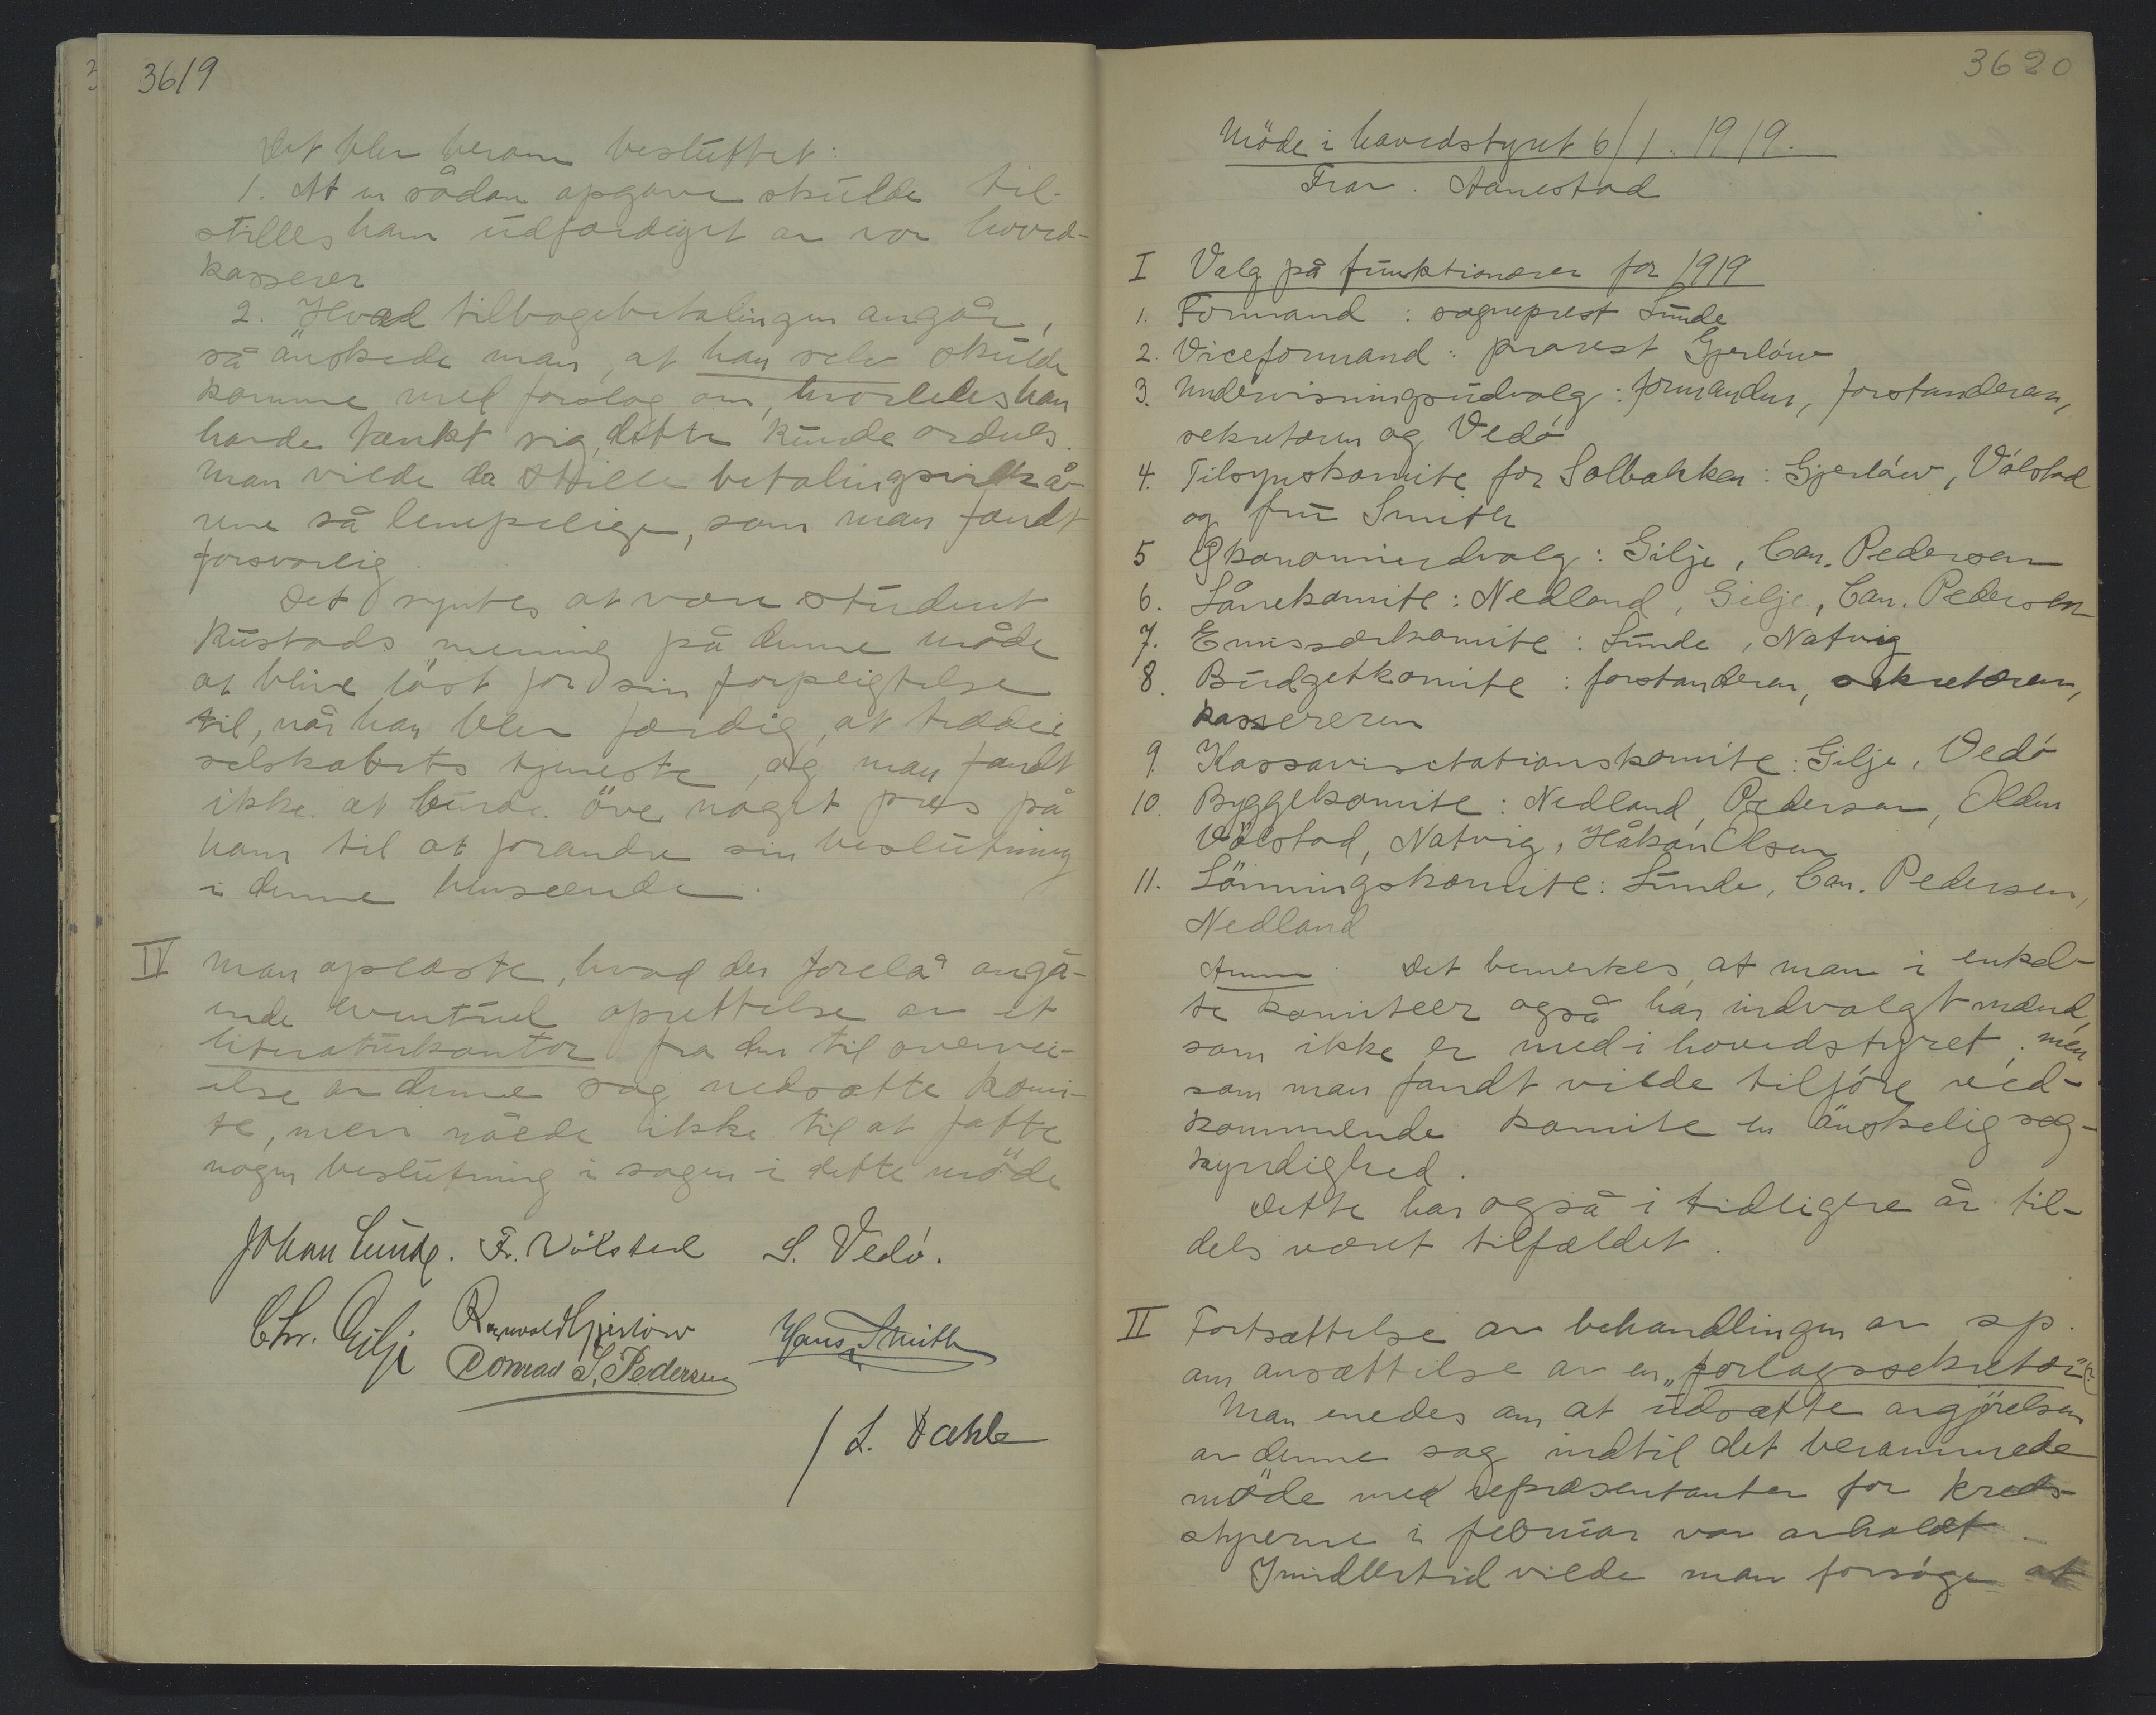 3619
Det blev herom besluttet:
1. At en sådan opgave skulde til-
stilles ham udfærdiget av vor hoved-
kasserer
2. Hvad tilbagebetalingen angår,
så ønskede man, at han selv skulde
komme med forslag om, hvorledes han
havde tænkt sig, dette kunde ordnes.
Man vilde da stille betalingsvilkå-
rene så lempelige, som man fandt
forsvarlig.
Det syntes at være student
Rustads mening på denne måde
at blive løst for sin forpligtelse
til, når han blev færdig, at træde i
selskabets tjeneste, og man fandt
ikke at burde øve noget pres på
ham til at forandre sin beslutning
i denne henseende.
IV Man oplæste, hvad der forelå angå-
ende eventuel oprettelse av et
literaturkontor fra den til overvei-
else av denne sag nedsatte komi-
te, men nåede ikke til at fatte
nogen beslutning i sagen i dette møde
Johan Lunde. Fr. Völstad S. Vedö.
Chr. Gilje Ragnvald Gjerløw Hans Smith
Conrad S. Pedersen
/ L. Dahle
3620
Møde i hovedstyret 6/1. 1919.
Frav. Aanestad
I Valg på funktionærer for 1919
1. Formand: sogneprest Lunde
2. Viceformand: provst Gjerlöw
3. Undervisningsudvalg: formanden, forstanderen,
sekretæren og Vedö
4. Tilsynskomite for Solbakken: Gjerlöw, Völstad
og fru Smith
5 Økonomiudvalg: Gilje, Con. Pedersen
6. Lånekomite: Nedland, Gilje, Con. Pedersen
7. Emissærkomite: Lunde, Natvig
8. Budgetkomite: forstanderen, sekretæren,
kassereren
9. Kassavisitationskomite: Gilje, Vedö
10. Byggekomite: Nedland, Pedersen, Olden
Völstad, Natvig, Håkon Olsen
11. Lönningskomite: Lunde, Con. Pedersen,
Nedland
Anm. Det bemerkes, at man i enkel-
te komiteer også har indvalgt mænd,
som ikke er med i hovedstyret, men
som man fandt vilde tilføre ved-
kommende komite en ønskelig sag-
kyndighed.
Dette har også i tidligere år til-
dels været tilfældet.
II Fortsættelse av behandlingen av sp.
om ansættelse av en „forlagssekretær“.
Man enedes om at udsætte avgjörelsen
av denne sag indtil det berammede
møde med repræsentanter for kreds-
styrerne i februar var avholdt.
Imidlertid vilde man forsøge at